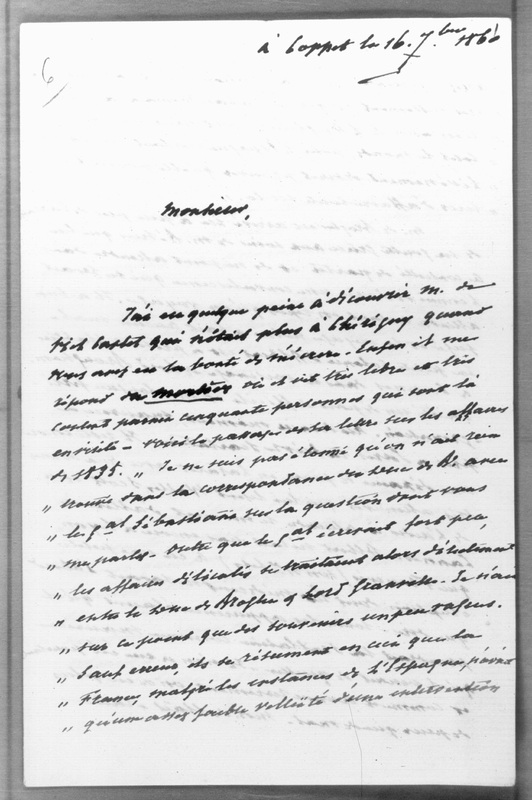 6
à Coppet le 16. 7bre 1860
Monsieur,
J'ai eu quelque peine à découvrir M. de
qui n'était plus à quand
vous avez eu la bonté de m'écrire. Enfin il me
répond de où il vit très libre et très
content parmi cinquante personnes qui sont là
en visite - voici le passage de sa lettre sur les affaires
de 1835. " Je ne suis pas étonné qu'on n'ait rien
" trouvé dans la correspondance du Duc de B. avec
" le gal Sébastiani sur la question dont vous
" me parlez. Outre que le gal écrivait fort peu,
" les affaires délicates se traitaient alors directement
" entre le Duc de Broglie & Lord Granville. Je n'ai
" sur ce point que des souvenirs un peu vagues.
" Sauf erreur, ils se résument en ceci que la
" France, malgré les instances de l'Espagne,
" qu'une assez faible velléité d'une intervention